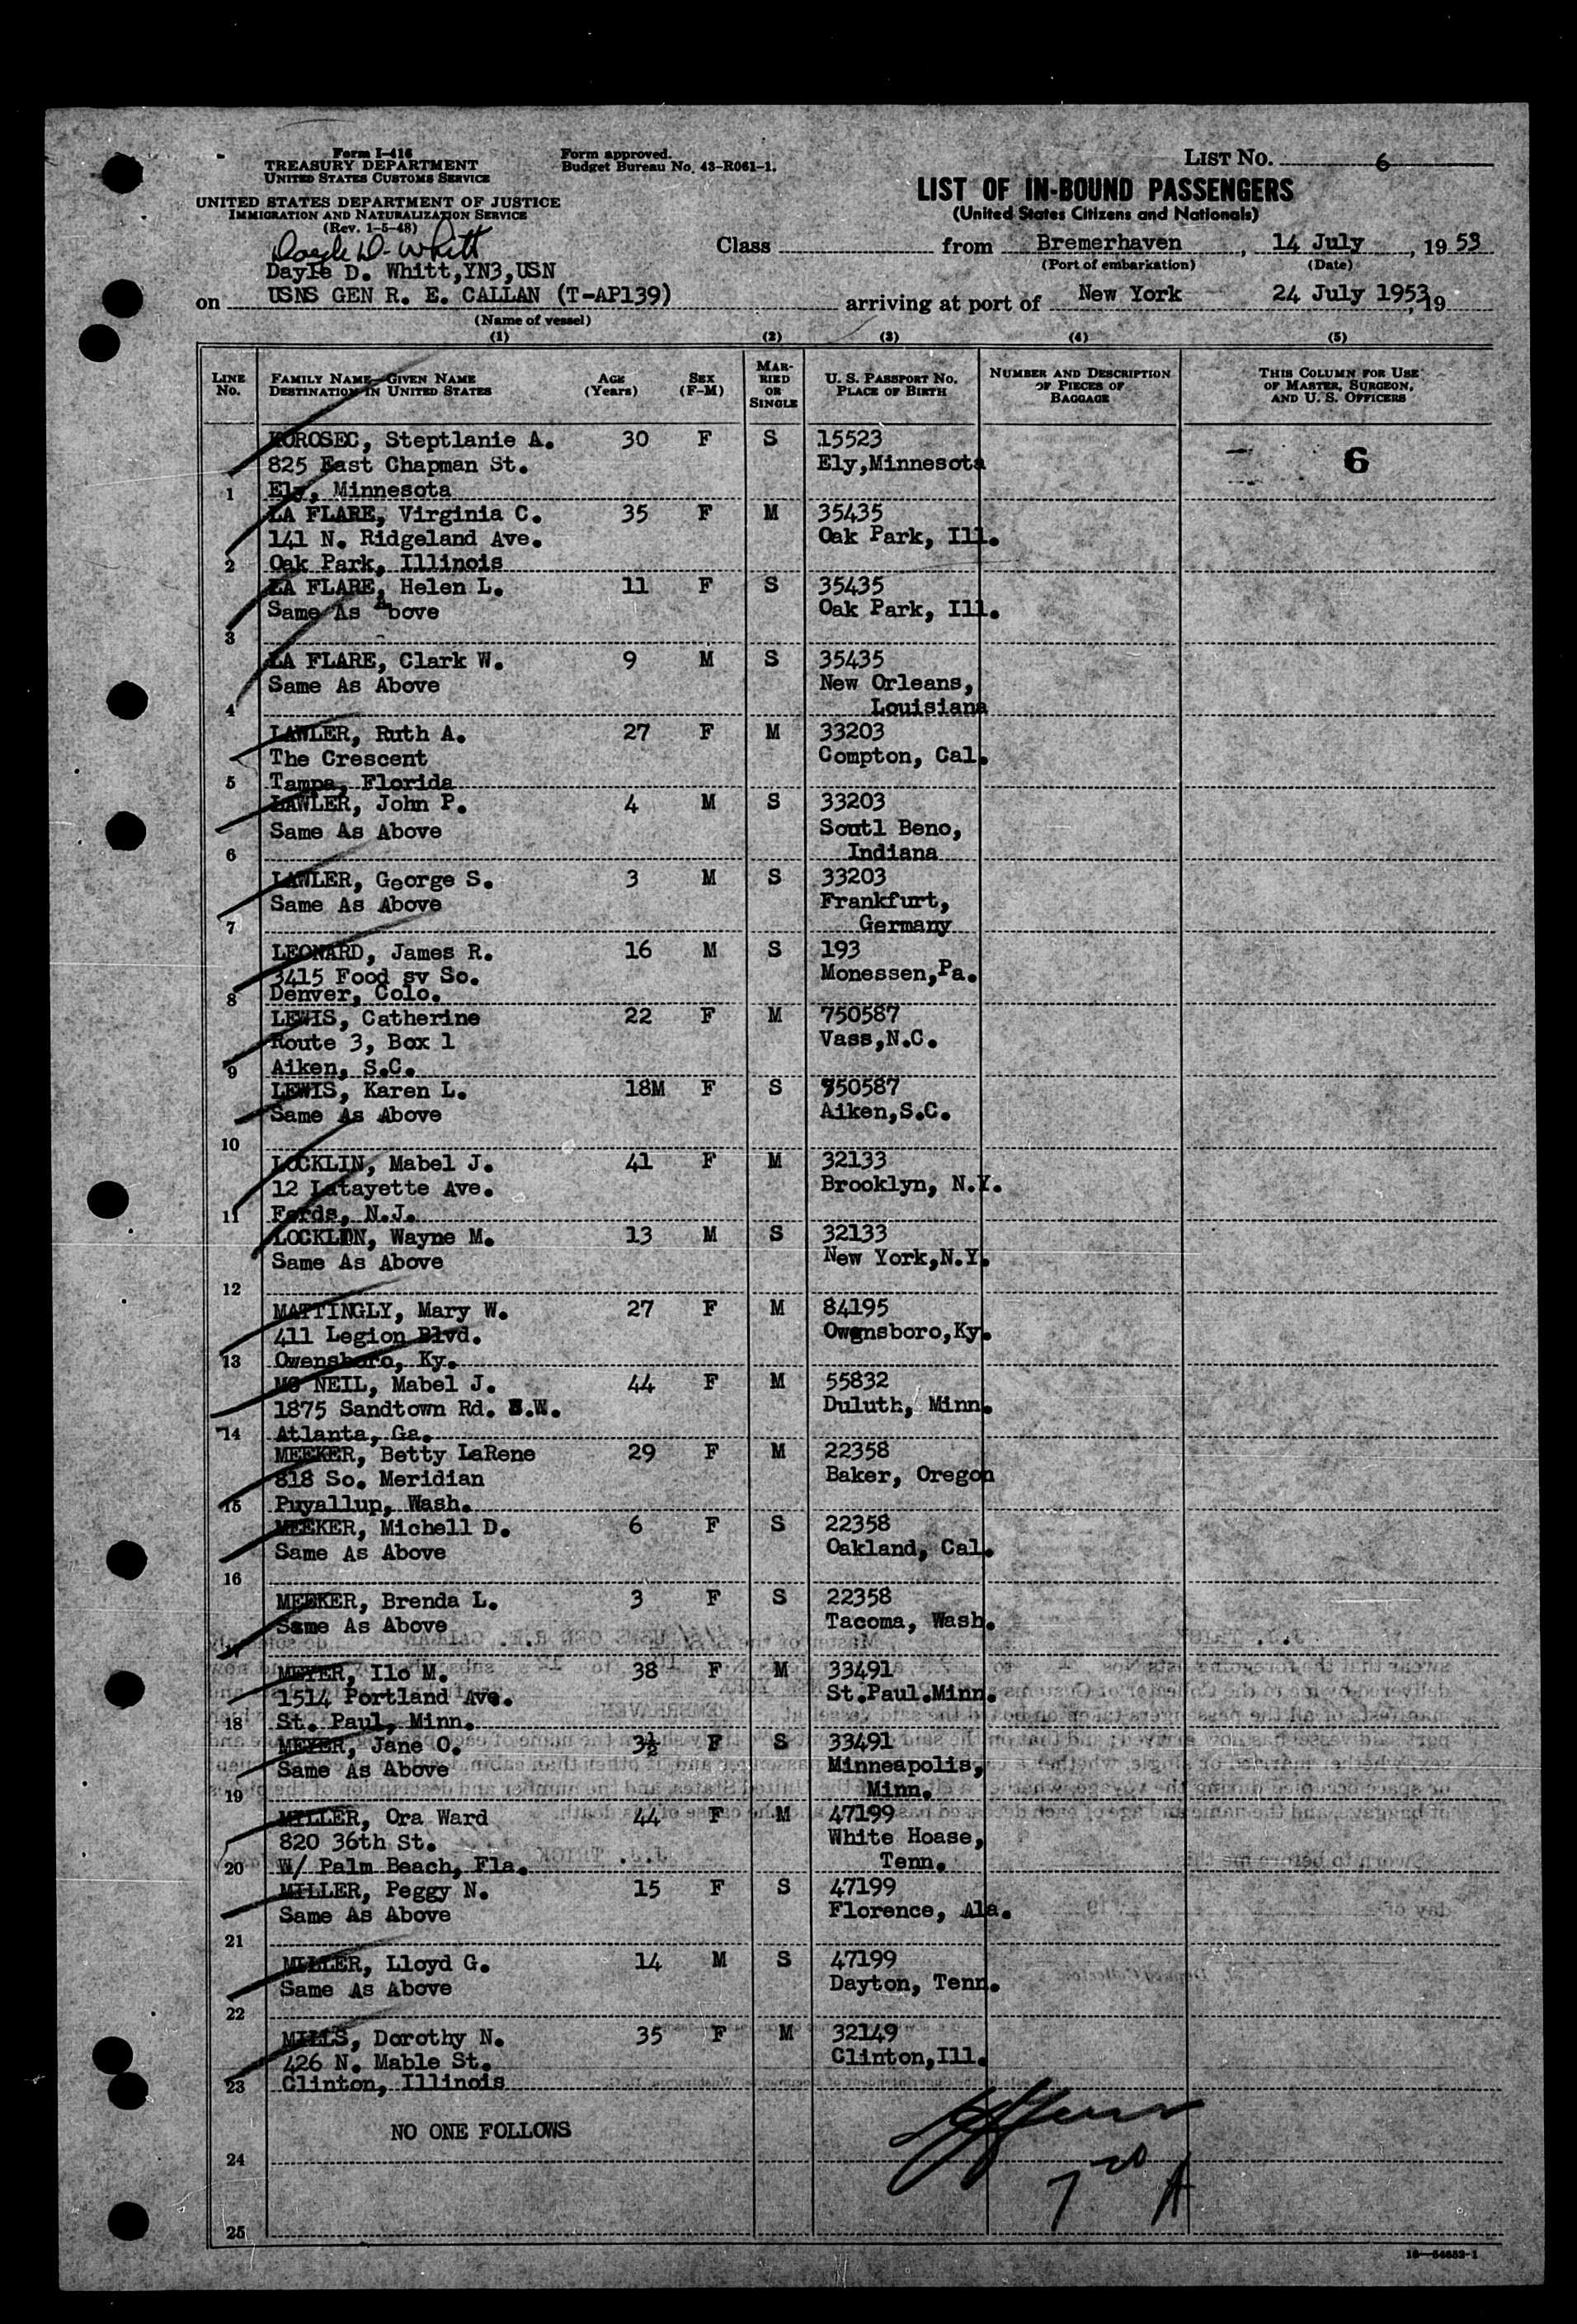 Form I-416
TREASURY DEPARTMENT
UNITED STATES CUSTOMS SERVICE
Form approved.
Budget Bureau No. 43-R061-1.
LIST No. 6
UNITED STATES DEPARTMENT OF JUSTICE
IMMIGRATION AND NATURALIZATION SERVICE
(Rev. 1-5-48)
LIST OF IN-BOUND PASSENGERS
(United States Citizens and Nationals)
Dayle D. Whitt
Dayle D. Whitt,YN3,USN
Class from Bremerhaven, 14 July, 1953
(Port of embarkation) (Date)
on USNS GEN R. E. CALLAN (T-AP139) arriving at port of New York 24 July 1953,19
(Name of vessel)
(1) (2) (3) (4) (5)
LINE No. FAMILY NAME—GIVEN NAME DESTINATION IN UNITED STATES AGE (Years) SEX (F-M) MARRIED OR SINGLE U. S. PASSPORT No. PLACE OF BIRTH NUMBER AND DESCRIPTION OF PIECES OF BAGGAGE THIS COLUMN FOR USE OF MASTER, SURGEON, AND U. S. OFFICERS
KOROSEC, Steptlanie A. 30 F S 15523 6
825 East Chapman St. Ely,Minnesota
1 Ely, Minnesota
LA FLARE, Virginia C. 35 F M 35435
141 N. Ridgeland Ave. Oak Park, Ill.
2 Oak Park, Illinois
LA FLARE, Helen L. 11 F S 35435
Same As Above Oak Park, Ill.
3
LA FLARE, Clark W. 9 M S 35435
Same As Above New Orleans,
4 Louisiana
LAWLER, Ruth A. 27 F M 33203
The Crescent Compton, Cal.
5 Tampa, Florida
LAWLER, John P. 4 M S 33203
Same As Above Soutl Beno,
6 Indiana
LAWLER, George S. 3 M S 33203
Same As Above Frankfurt,
7 Germany
LEONARD, James R. 16 M S 193
3415 Food sv So. Monessen,Pa.
8 Denver, Colo.
LEWIS, Catherine 22 F M 750587
Route 3, Box 1 Vass,N.C.
9 Aiken, S.C.
LEWIS, Karen L. 18M F S 750587
Same As Above Aiken,S.C.
10
LOCKLIN, Mabel J. 41 F M 32133
12 Latayette Ave. Brooklyn, N.Y.
11 Fords, N.J.
LOCKLIN, Wayne M. 13 M S 32133
Same As Above New York,N.Y.
12
MATTINGLY, Mary W. 27 F M 84195
411 Legion Blvd. Owensboro,Ky.
13 Owensboro, Ky.
MC NEIL, Mabel J. 44 F M 55832
1875 Sandtown Rd. S.W. Duluth, Minn.
14 Atlanta, Ga.
MEEKER, Betty LaRene 29 F M 22358
818 So. Meridian Baker, Oregon
15 Puyallup, Wash.
MEEKER, Michell D. 6 F S 22358
Same As Above Oakland, Cal.
16
MEEKER, Brenda L. 3 F S 22358
Same As Above Tacoma, Wash.
17
MEYER, Ilo M. 38 F M 33491
1514 Portland Ave. St.Paul.Minn.
18 St. Paul, Minn.
MEYER, Jane O. 3½ F S 33491
Same As Above Minneapolis,
19 Minn.
MILLER, Ora Ward 44 F M 47199
820 36th St. White Hoase,
20 W/ Palm Beach, Fla. Tenn.
MILLER, Peggy N. 15 F S 47199
Same As Above Florence, Ala.
21
MILLER, Lloyd G. 14 M S 47199
Same As Above Dayton, Tenn.
22
MILLS, Dorothy N. 35 F M 32149
426 N. Mable St. Clinton,Ill.
23 Clinton, Illinois
NO ONE FOLLOWS
24
25